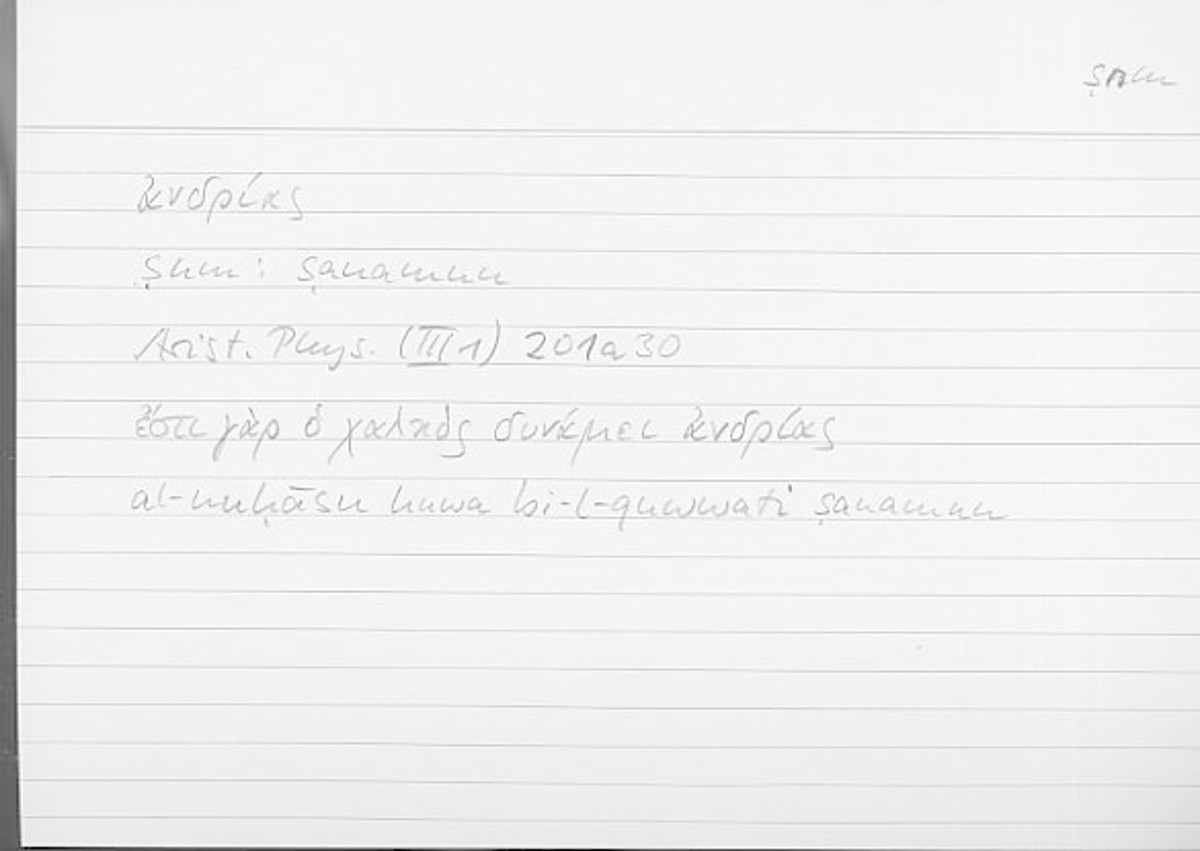 ṣnm
ἀνδρίας
ṣnm: ṣanamun
Arist. Phys. (III 1) 201a30
ἔστι γὰρ ὁ χαλκὸς δυνάμει ἀνδρίας
al-nuḥāsu huwa bi-l-quwwati ṣanamun